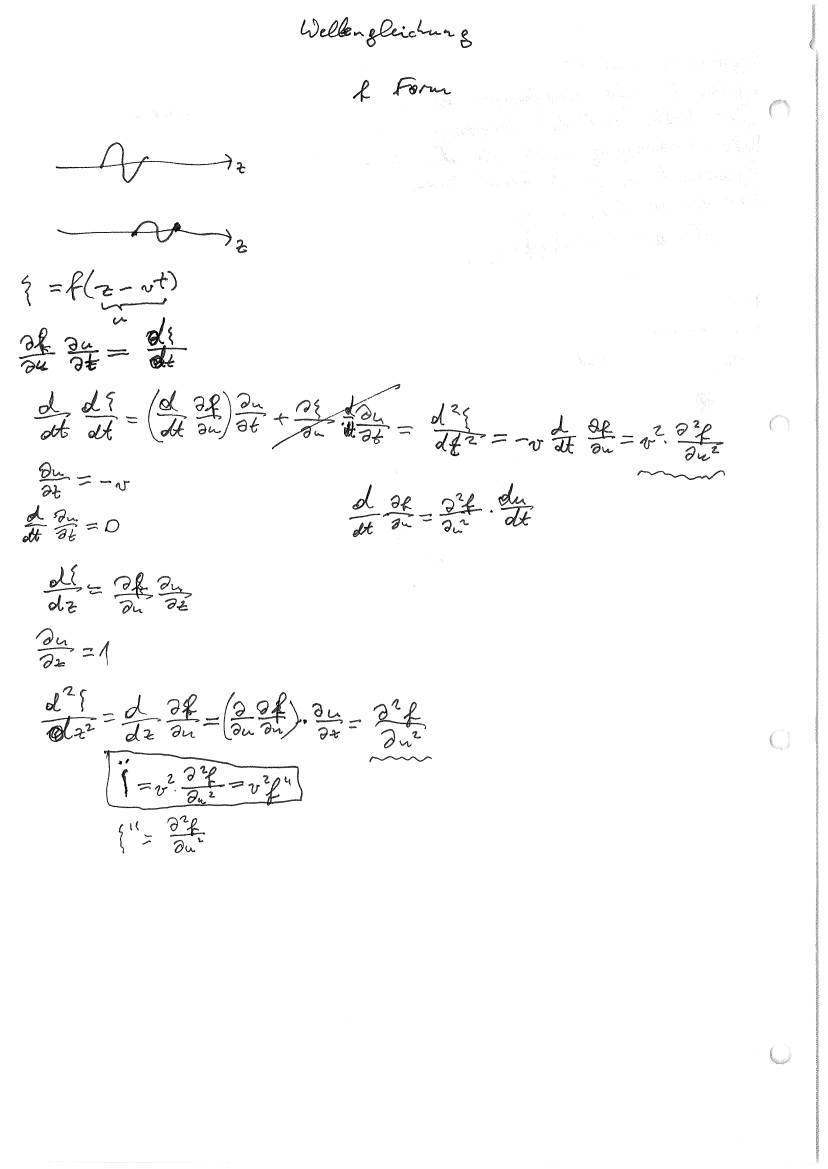 Wellengleichung
f Form
z
z
ξ = f(z − vt)
u
∂f/∂u ∂u/∂t = dξ/dt
d/dt dξ/dt = (d/dt ∂f/∂u) ∂u/∂t + ∂ξ/∂u d/dt ∂u/∂t = d²ξ/dt² = −v d/dt ∂f/∂u = v² · ∂²f/∂u²
∂u/∂t = −v
d/dt ∂u/∂t = 0
d/dt ∂f/∂u = ∂²f/∂u² · du/dt
dξ/dz = ∂f/∂u ∂u/∂z
∂u/∂z = 1
d²ξ/dz² = d/dz ∂f/∂u = (∂/∂u ∂f/∂u) · ∂u/∂z = ∂²f/∂u²
ξ̈ = v² · ∂²f/∂u² = v² f"
ξ" = ∂²f/∂u²